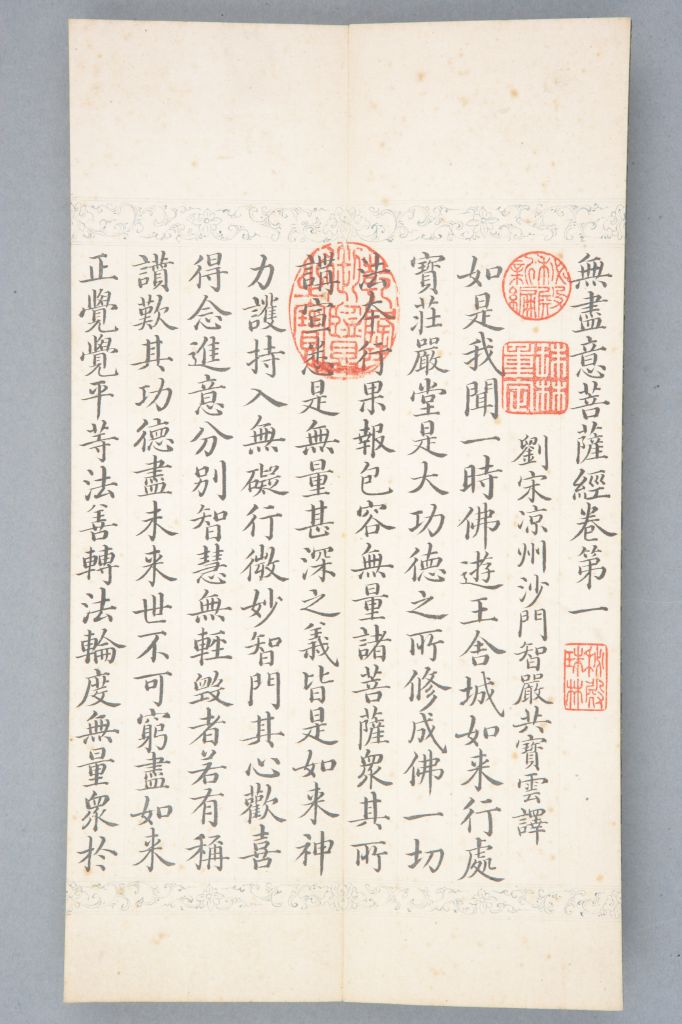 無盡意菩薩經卷第一
劉宋凉州沙門智嚴共寶雲譯
如是我聞一時佛遊王舍城如来行處
寶莊嚴堂是大功德之所修成佛一切
法本行果報包容無量諸菩薩衆其所
講宣悉是無量甚深之義皆是如来神
力護持入無礙行微妙智門其心歡喜
得念進意分别智慧無輕毀者若有稱
讚歎其功德盡未来世不可窮盡如来
正覺覺平等法善轉法輪度無量衆於
秘殿新編
珠林重定
秘殿珠林
乾隆御覽之寶